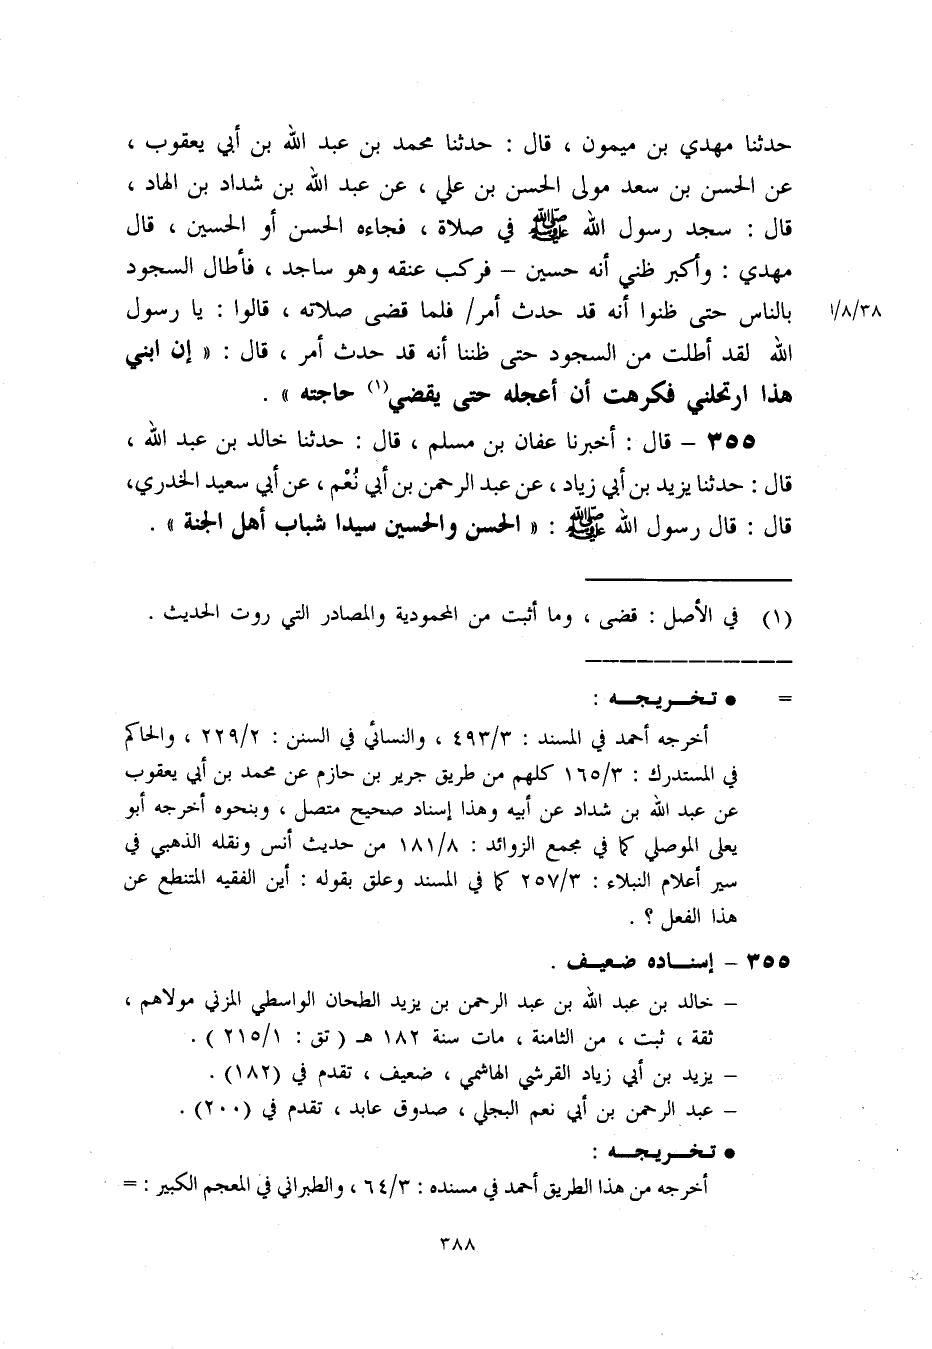 حدثنا مهدي بن ميمون ، قال : حدثنا محمد بن عبد الله بن أبي يعقوب ،
عن الحسن بن سعد مولى الحسن بن علي ، عن عبد الله بن شداد بن الهاد ،
قال : سجد رسول الله ﷺ في صلاة ، فجاءه الحسن أو الحسين ، قال
مهدي : وأكبر ظني أنه حسين – فركب عنقه وهو ساجد ، فأطال السجود
بالناس حتى ظنوا أنه قد حدث أمر/ فلما قضى صلاته ، قالوا : يا رسول ١/٨/٣٨
الله لقد أطلت من السجود حتى ظننا أنه قد حدث أمر ، قال : « إن ابني
هذا ارتحلني فكرهت أن أعجله حتى يقضي(١) حاجته » .
٣٥٥ – قال : أخبرنا عفان بن مسلم ، قال : حدثنا خالد بن عبد الله ،
قال : حدثنا يزيد بن أبي زياد ، عن عبد الرحمن بن أبي نُعْم ، عن أبي سعيد الخدري،
قال : قال رسول الله ﷺ : « الحسن والحسين سيدا شباب أهل الجنة » .
(١) في الأصل : قضى ، وما أثبت من المحمودية والمصادر التي روت الحديث .
= • تخريجه :
أخرجه أحمد في المسند : ٤٩٣/٣ ، والنسائي في السنن : ٢٢٩/٢ ، والحاكم
في المستدرك : ١٦٥/٣ كلهم من طريق جرير بن حازم عن محمد بن أبي يعقوب
عن عبد الله بن شداد عن أبيه وهذا إسناد صحيح متصل ، وبنحوه أخرجه أبو
يعلى الموصلي كما في مجمع الزوائد : ١٨١/٨ من حديث أنس ونقله الذهبي في
سير أعلام النبلاء : ٢٥٧/٣ كما في المسند وعلق بقوله : أين الفقيه المتنطع عن
هذا الفعل ؟ .
٣٥٥ – إسناده ضعيف .
– خالد بن عبد الله بن عبد الرحمن بن يزيد الطحان الواسطي المزني مولاهم ،
ثقة ، ثبت ، من الثامنة ، مات سنة ١٨٢ هـ ( تق : ٢١٥/١ ) .
– يزيد بن أبي زياد القرشي الهاشمي ، ضعيف ، تقدم في (١٨٢) .
– عبد الرحمن بن أبي نعم البجلي ، صدوق عابد ، تقدم في (٢٠٠) .
• تخريجه :
أخرجه من هذا الطريق أحمد في مسنده : ٦٤/٣ ، والطبراني في المعجم الكبير : =
٣٨٨